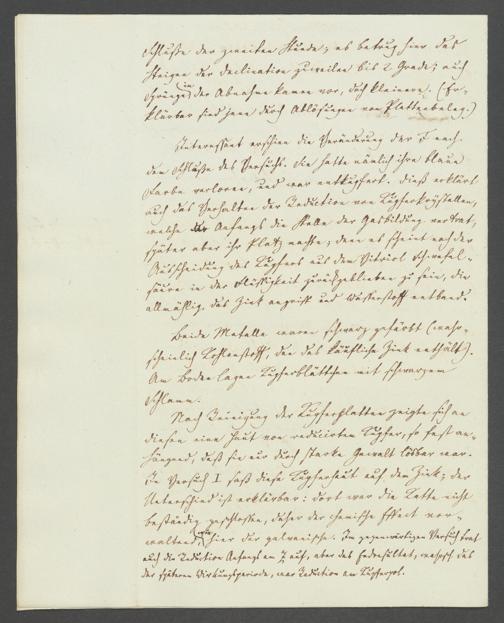 Schluße der zweiten Stunde; es betrug hier das
Steigen der Declination zuweilen bis 2 Grade; auch
Sprünge in der Abnahme kamen vor, doch kleinere. (Er-
klärbar sind jene durch Ablösungen von Plattenbeleg.)
Interessant erschien die Veränderung der F nach
dem Schluße des Versuchs. Sie hatte nämlich ihre blaue
Farbe verloren, und war entkupfert. Dieß erklärt
auch das Verhalten der Reduction von Kupferkrystallen,
welche Anfangs die Stelle der Gasbildung vertrat,
später aber ihr Platz machte; denn es scheint nach der
Ausscheidung des Kupfers aus dem Vitriol Schwefel-
säure in der Flüssigkeit zurückgeblieben zu sein, die
allmählig das Zink angriff und Wasserstoff entband.
Beide Metalle waren schwarz gefärbt (wahr-
scheinlich Kohlenstoff, den das käufliche Zink enthält).
Am Boden lagen Kupferblättchen mit schwarzem
Schlamm.
Nach Reinigung der Kupferplatten zeigte sich an
diesen eine Haut von reducirtem Kupfer, so fest an-
hängend, daß sie nur durch starke Gewalt lösbar war.
In Versuch I saß diese Kupferhaut auf dem Zink; der
Unterschied ist erklärbar: dort war die Kette nicht
beständig geschlossen, daher der chemische Effect vor-
waltend, hier der galvanische. Im gegenwärtigen Versuch trat
auch die Reduction Anfangs am Z auf, aber das Endresultat, das
der späteren Wirkungsperiode, war Reduction am Kupferpol.